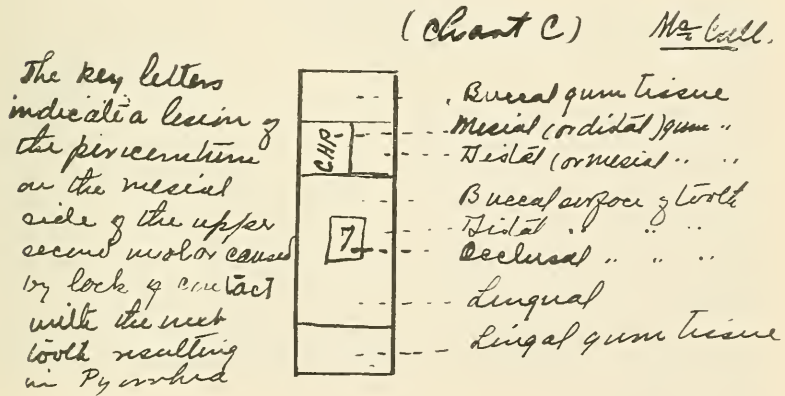 (Chart C) McCall.
The key letters
indicate a lesion of
the pericementum
on the mesial
side of the upper
second molar caused
by lack of contact
with the next
tooth resulting
in Pyorrhea
CHP
7
Buccal gum tissue
Mesial (or distal) gum "
Distal (or mesial " "
Buccal surface of tooth
Distal " " "
Occlusal " " "
Lingual
Lingal gum tissue